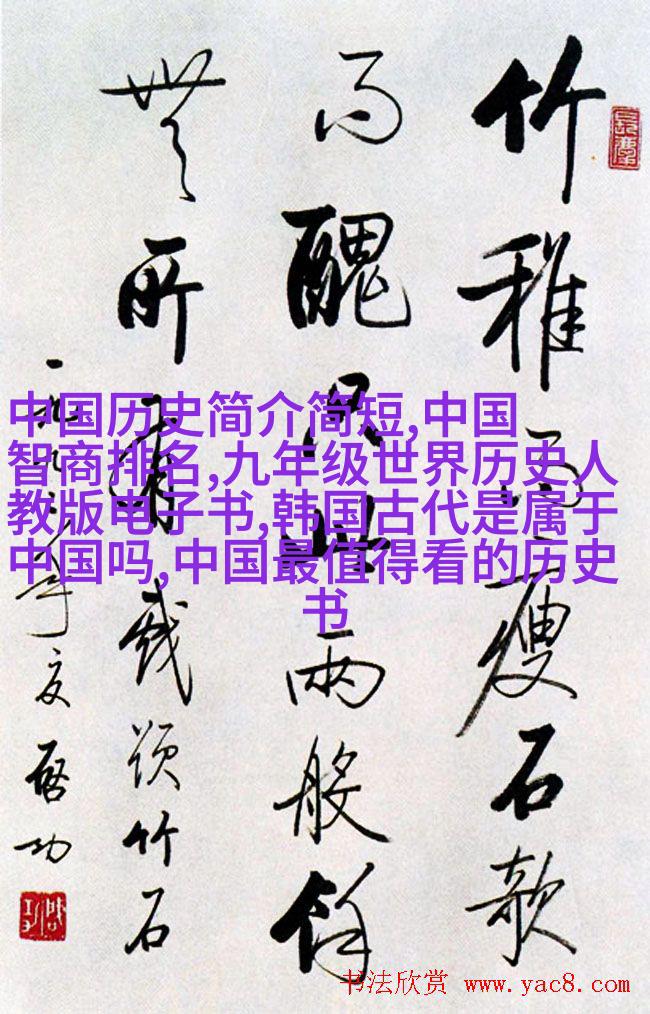 竹稚而瘦石欹
而醜只此兩般餘
無所有戲題竹石
一九年夏啟功
中国历史简介简短,中国
智商排名,九年级世界历史人
教版电子书,韩国古代是属于
中国吗,中国最值得看的历史
书
书法欣赏 www.yac8.com